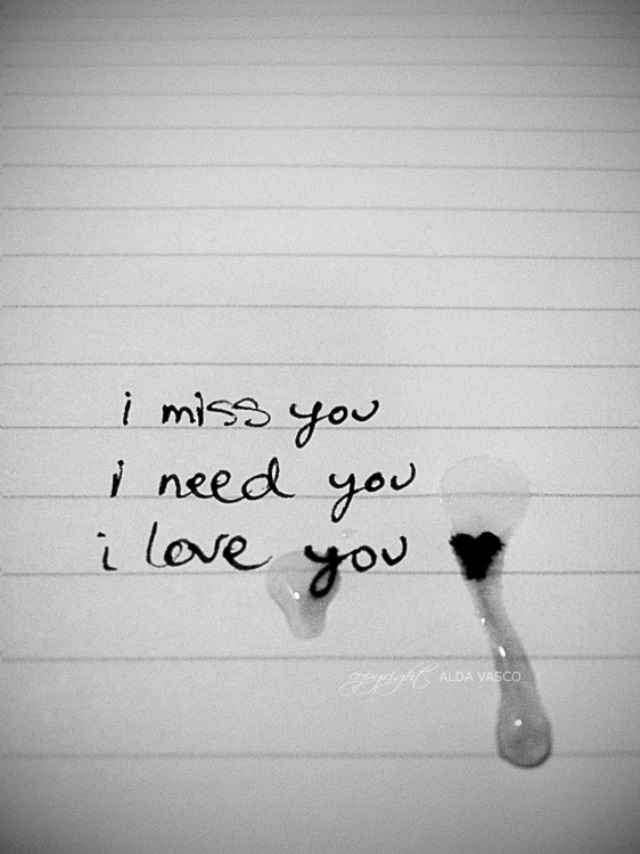 i miss you
i need you
i love you ♥
copyright ALDA VASCO